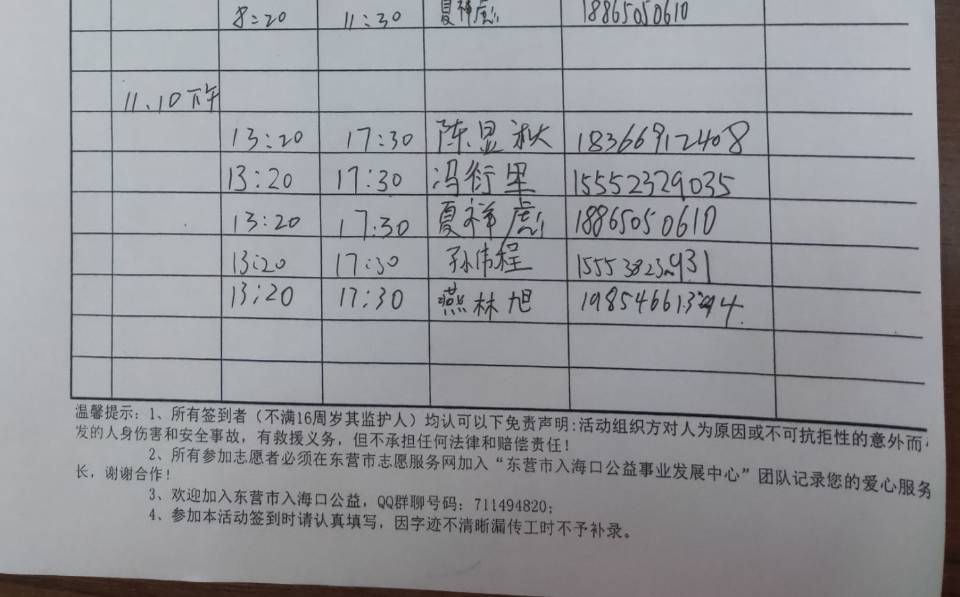 8:20 11:30 夏祥彪 18865050610
11.10下午
13:20 17:30 陈显秋 18366912408
13:20 17:30 冯衍里 15552329035
13:20 17:30 夏祥彪 18865050610
13:20 17:30 孙伟程
13:20 17:30 燕林旭
温馨提示:1、所有签到者(不满16周岁其监护人)均认可以下免责声明:活动组织方对人为原因或不可抗拒性的意外而
发的人身伤害和安全事故,有救援义务,但不承担任何法律和赔偿责任!
2、所有参加志愿者必须在东营市志愿服务网加入“东营市入海口公益事业发展中心”团队记录您的爱心服务
长,谢谢合作!
3、欢迎加入东营市入海口公益,QQ群聊号码:711494820;
4、参加本活动签到时请认真填写,因字迹不清晰漏传工时不予补录。